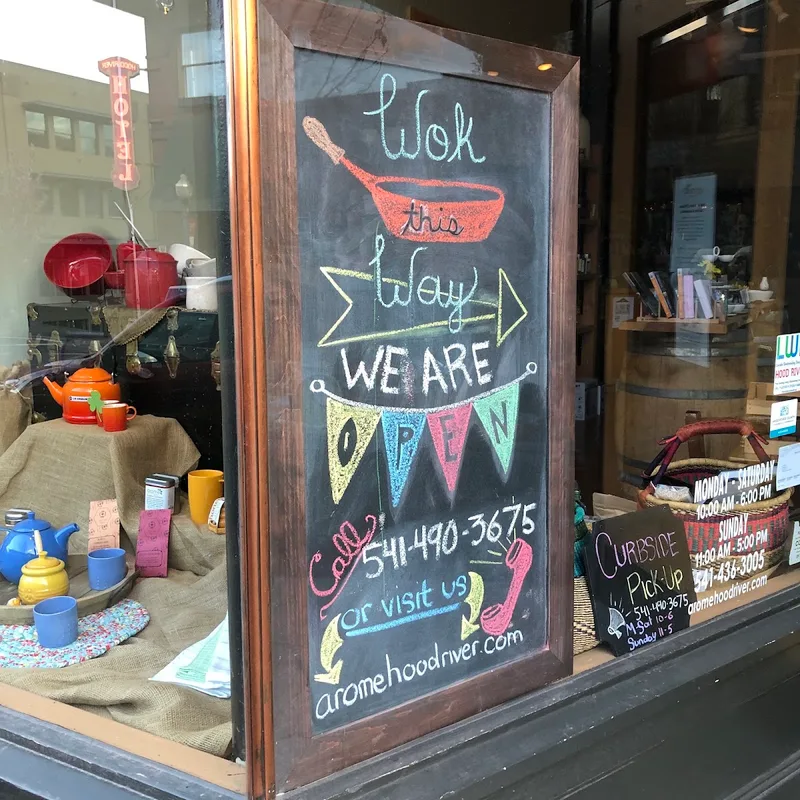 HOTEL
Wok
this
Way
WE ARE
OPEN
Call
541-490-3675
or visit us
aromehoodriver.com
CURBSIDE
PICK-UP
541-490-3675
M-Sat 10-6
Sunday 11-5
MONDAY - SATURDAY
10:00 AM - 6:00 PM
SUNDAY
11:00 AM - 5:00 PM
541-436-3005
aromehoodriver.com